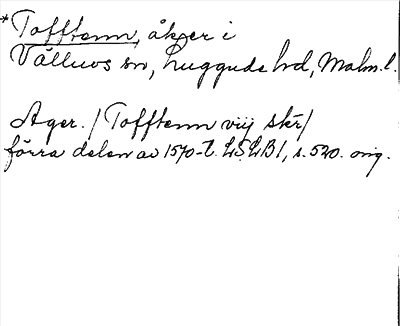 *Tofftenn, åker i
Välluvs sn, Luggude hd, Malm.l.
Ager. / Tofftenn viij skr /
förra delen av 1570-t. LSLB1, s.520. orig.